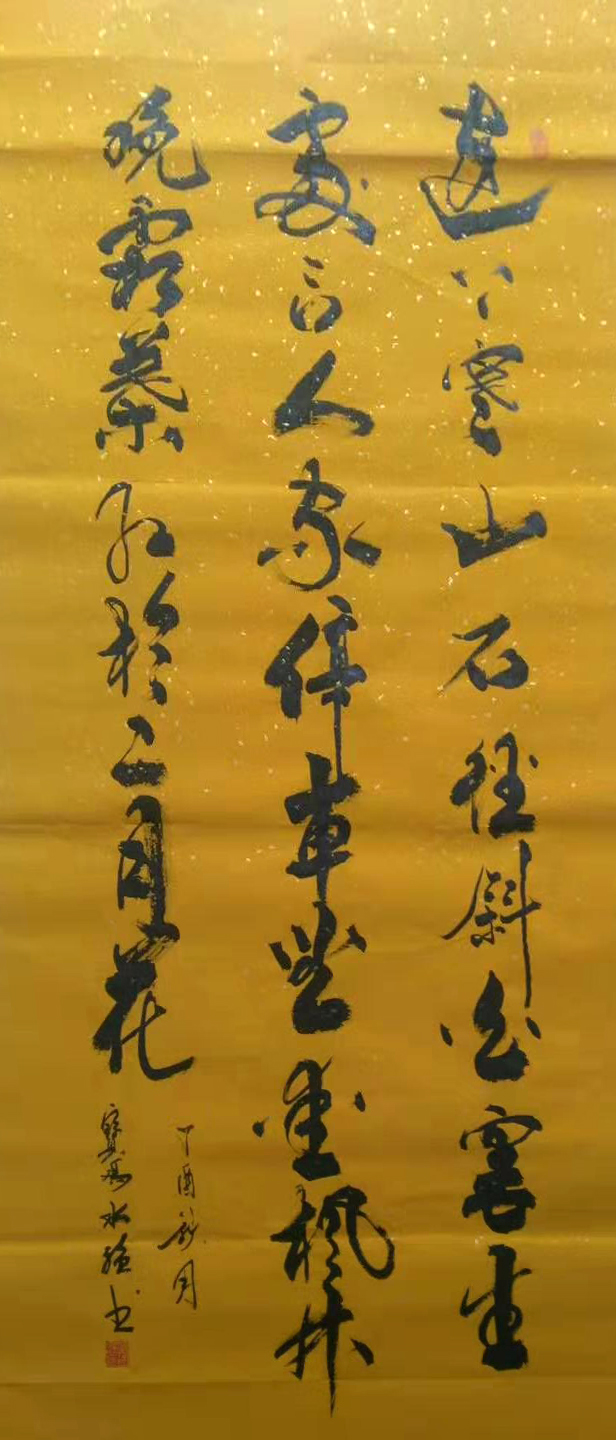 遠上寒山石徑斜白雲生
處有人家停車坐愛楓林
晚霜葉紅於二月花
丁酉秋月
水書